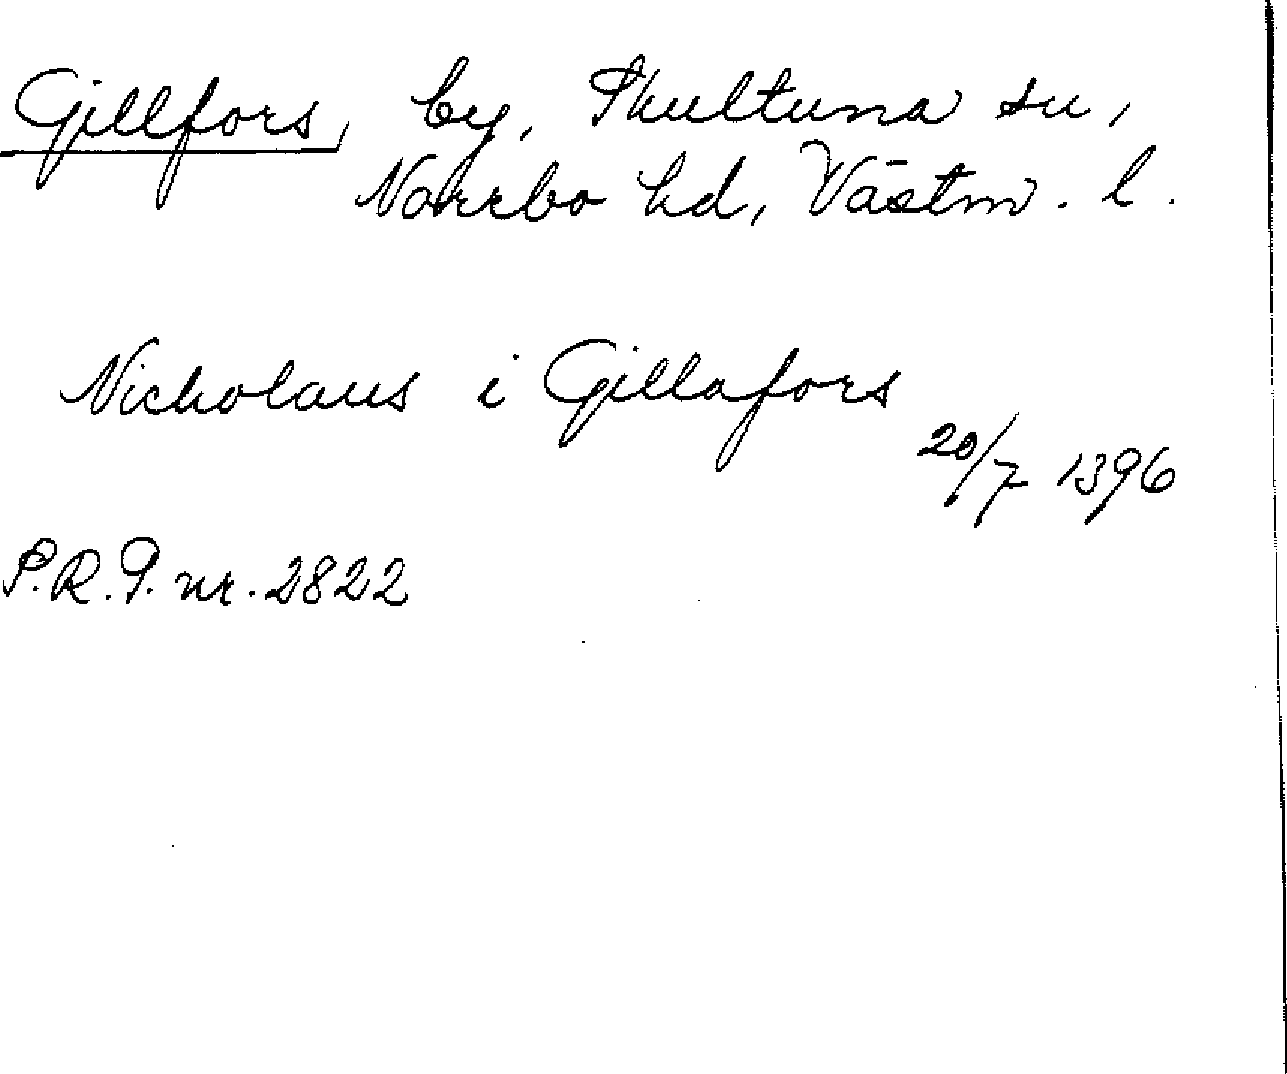 Gillfors, by, Skultuna sn,
Norrbo hd, Västm. l.
Nicholaus i Gillafors
20/7 1396
S.R.P. nr. 2822